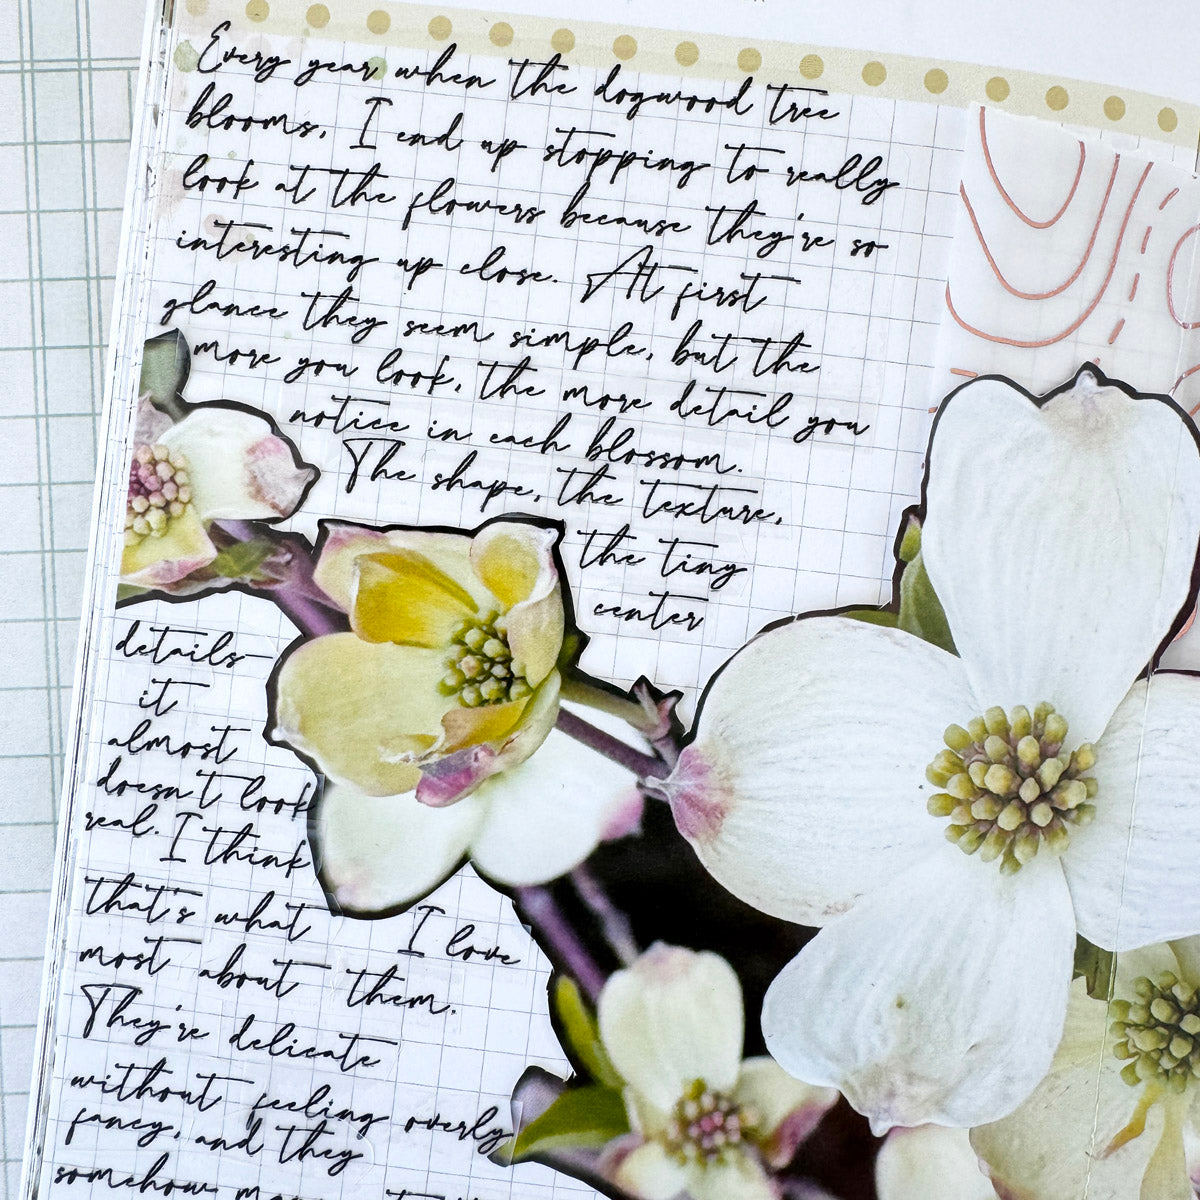 Every year when the dogwood tree
blooms, I end up stopping to really
look at the flowers because they're so
interesting up close. At first
glance they seem simple, but the
more you look, the more detail you
notice in each blossom.
The shape, the texture,
the tiny
center
details—
it
almost
doesn't look
real. I think
that's what I love
most about them.
They're delicate
without feeling overly
fancy, and they
somehow